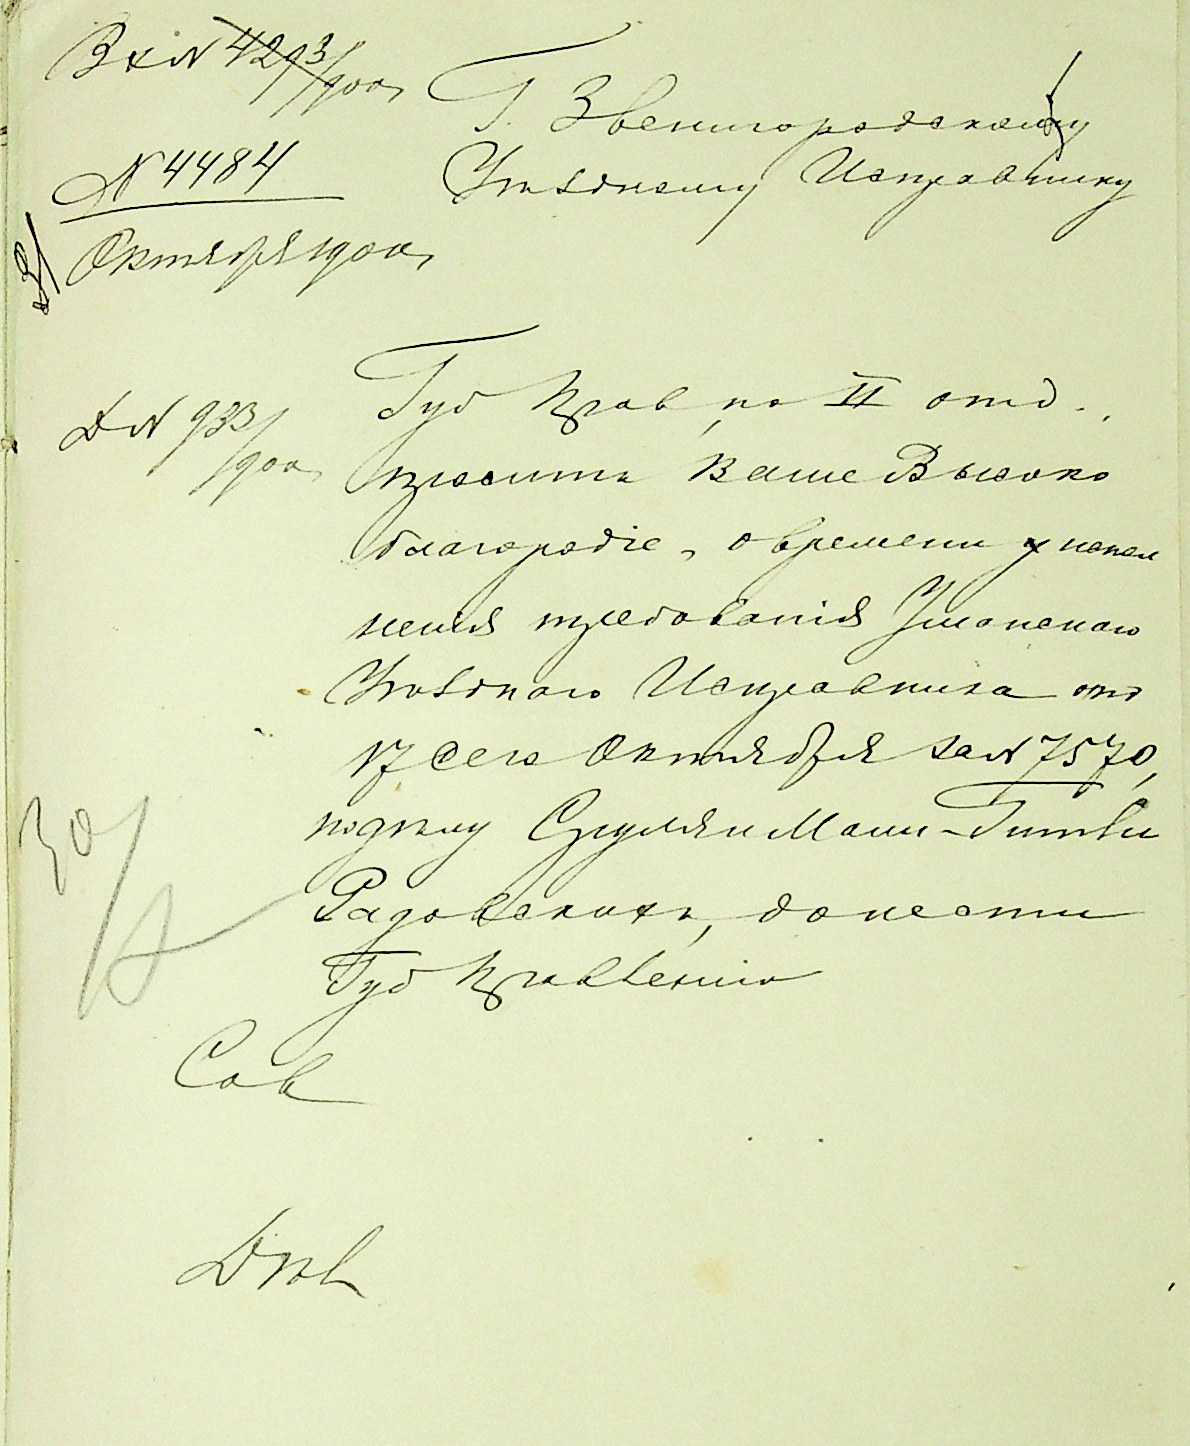 Вх N 4293/900
N 4484
31 Октября 1900,
Г. Звенигородскому
Уѣздному Исправнику
Д N 933/900
Губ Прав, по II отд.,
проситъ Ваше Высоко
благородіе, о времени исполн
ненія требованія Уманскаго
Уѣзднаго Исправника отъ
17 сего Октября за N 7570,
по дѣлу Сруля и Мани-Гитли
Радовскихъ, донести
Губ Правленію
30/X
Сов
Дѣл